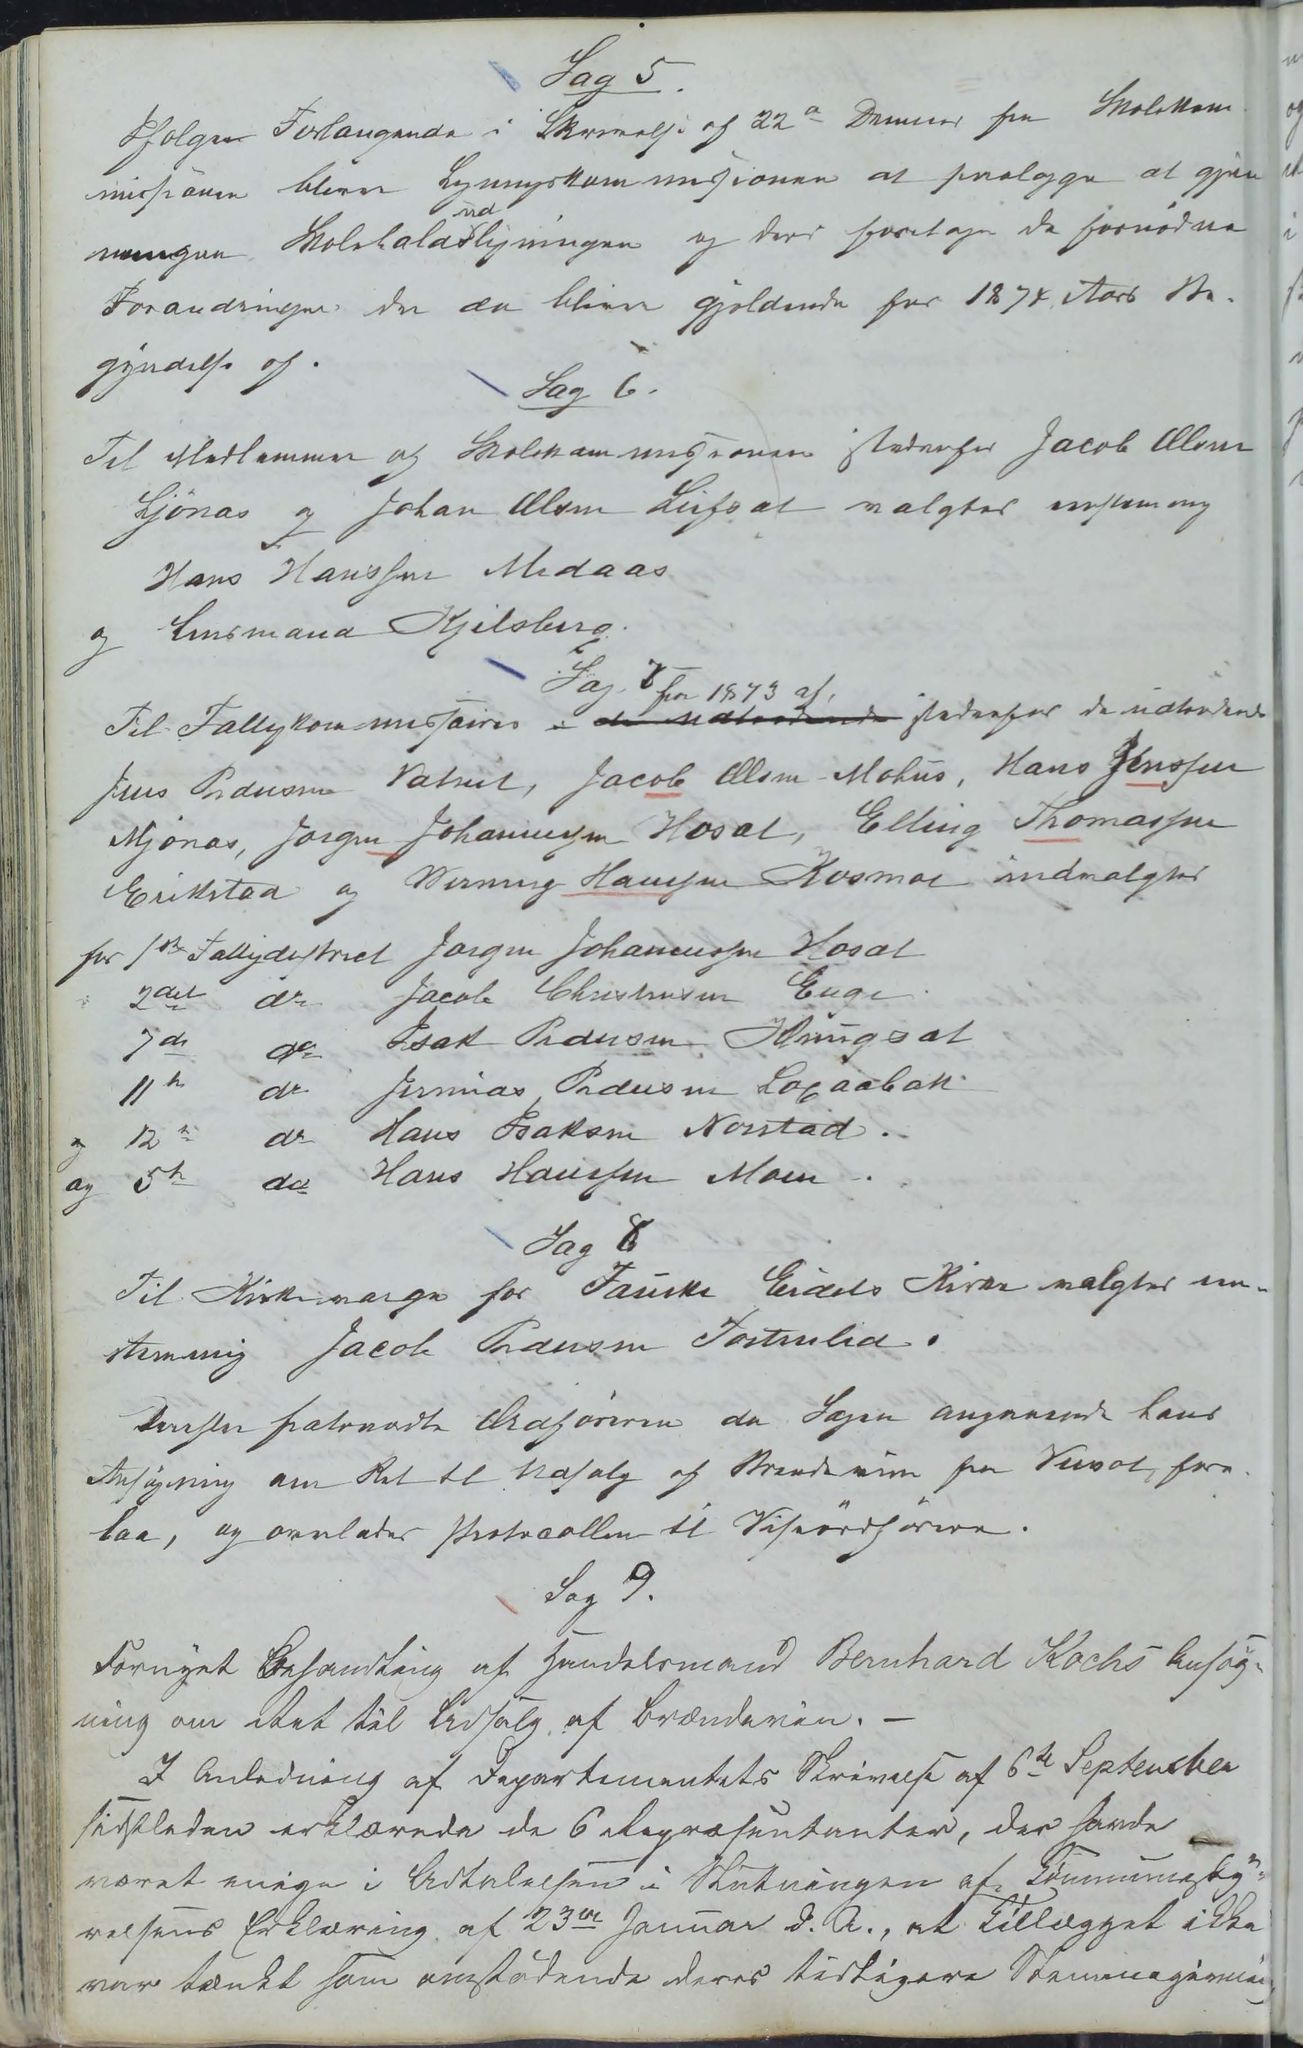 Sag 5.
Ifølge Forlangende i Skrivelse af 22de Dennes fra Skolekom-
missionen bliver Ligningskommissionen at paalægge at gjen-
nemgaa Skoleholdsudligningen og deri foretage de fornødne
Forandringer der da bliver gjeldende for 1874 Aars Be-
gyndelse af.
Sag 6.
Til Medlemmer af Skolekommissionen istedenfor Jacob Olsen
Ljønæs og Johan Olsen Leifset valgtes enstemmig
Hans Hanssen Medaas
og Lensmand Kjelsberg.
Sag 7
fra 1873 af,
Til Fattigkommissairer i de udtrædende istedenfor de udtrædende
Jens Pedersen Vatnet, Jacob Olsen Mohus, Hans Jenssen
Mjønæs, Jørgen Johannessen Hoset, Elling Thomassen
Erikstad og Hanssen Kosmo indvalgtes
for 1ste Fattigdistrict Jørgen Johannessen Hoset
2det do Jacob Christensen Enge
7de do Isak Pedersen Klungset
11te do Jermias Pedersen Løgaabak
og 12te do Hans Isaksen Norstad.
og 5te do Hans Hanssen Moen.
Sag 8
Til Kirkeværge for Fauske Eidets Kirke valgtes een-
stemmig Jacob Pedersen Tortenlid.
Derefter fratraadte Ordføreren da Sagen angaaende hans
Ansøgning om Ret til Udsalg af Brændeviin fra fore-
laa, og overlader Protocollen til Viseordføreren.
Sag 9.
Fornyet Behandling af Handelsmand Bernhard Kochs Ansøg-
ning om Ret til Udsalg af Brændeviin. –
I Anledning af Departementets Skrivelse af 6te September
sidstleden erklærede de 6 Repræsentanter, der havde
været enige i Udtalelsen i Slutningen af Communesty-
relsens Erklæring af 23de Januar d. A., at Tillægget ikke
var tænkt som omstødende deres tidligere Stemmegivning,